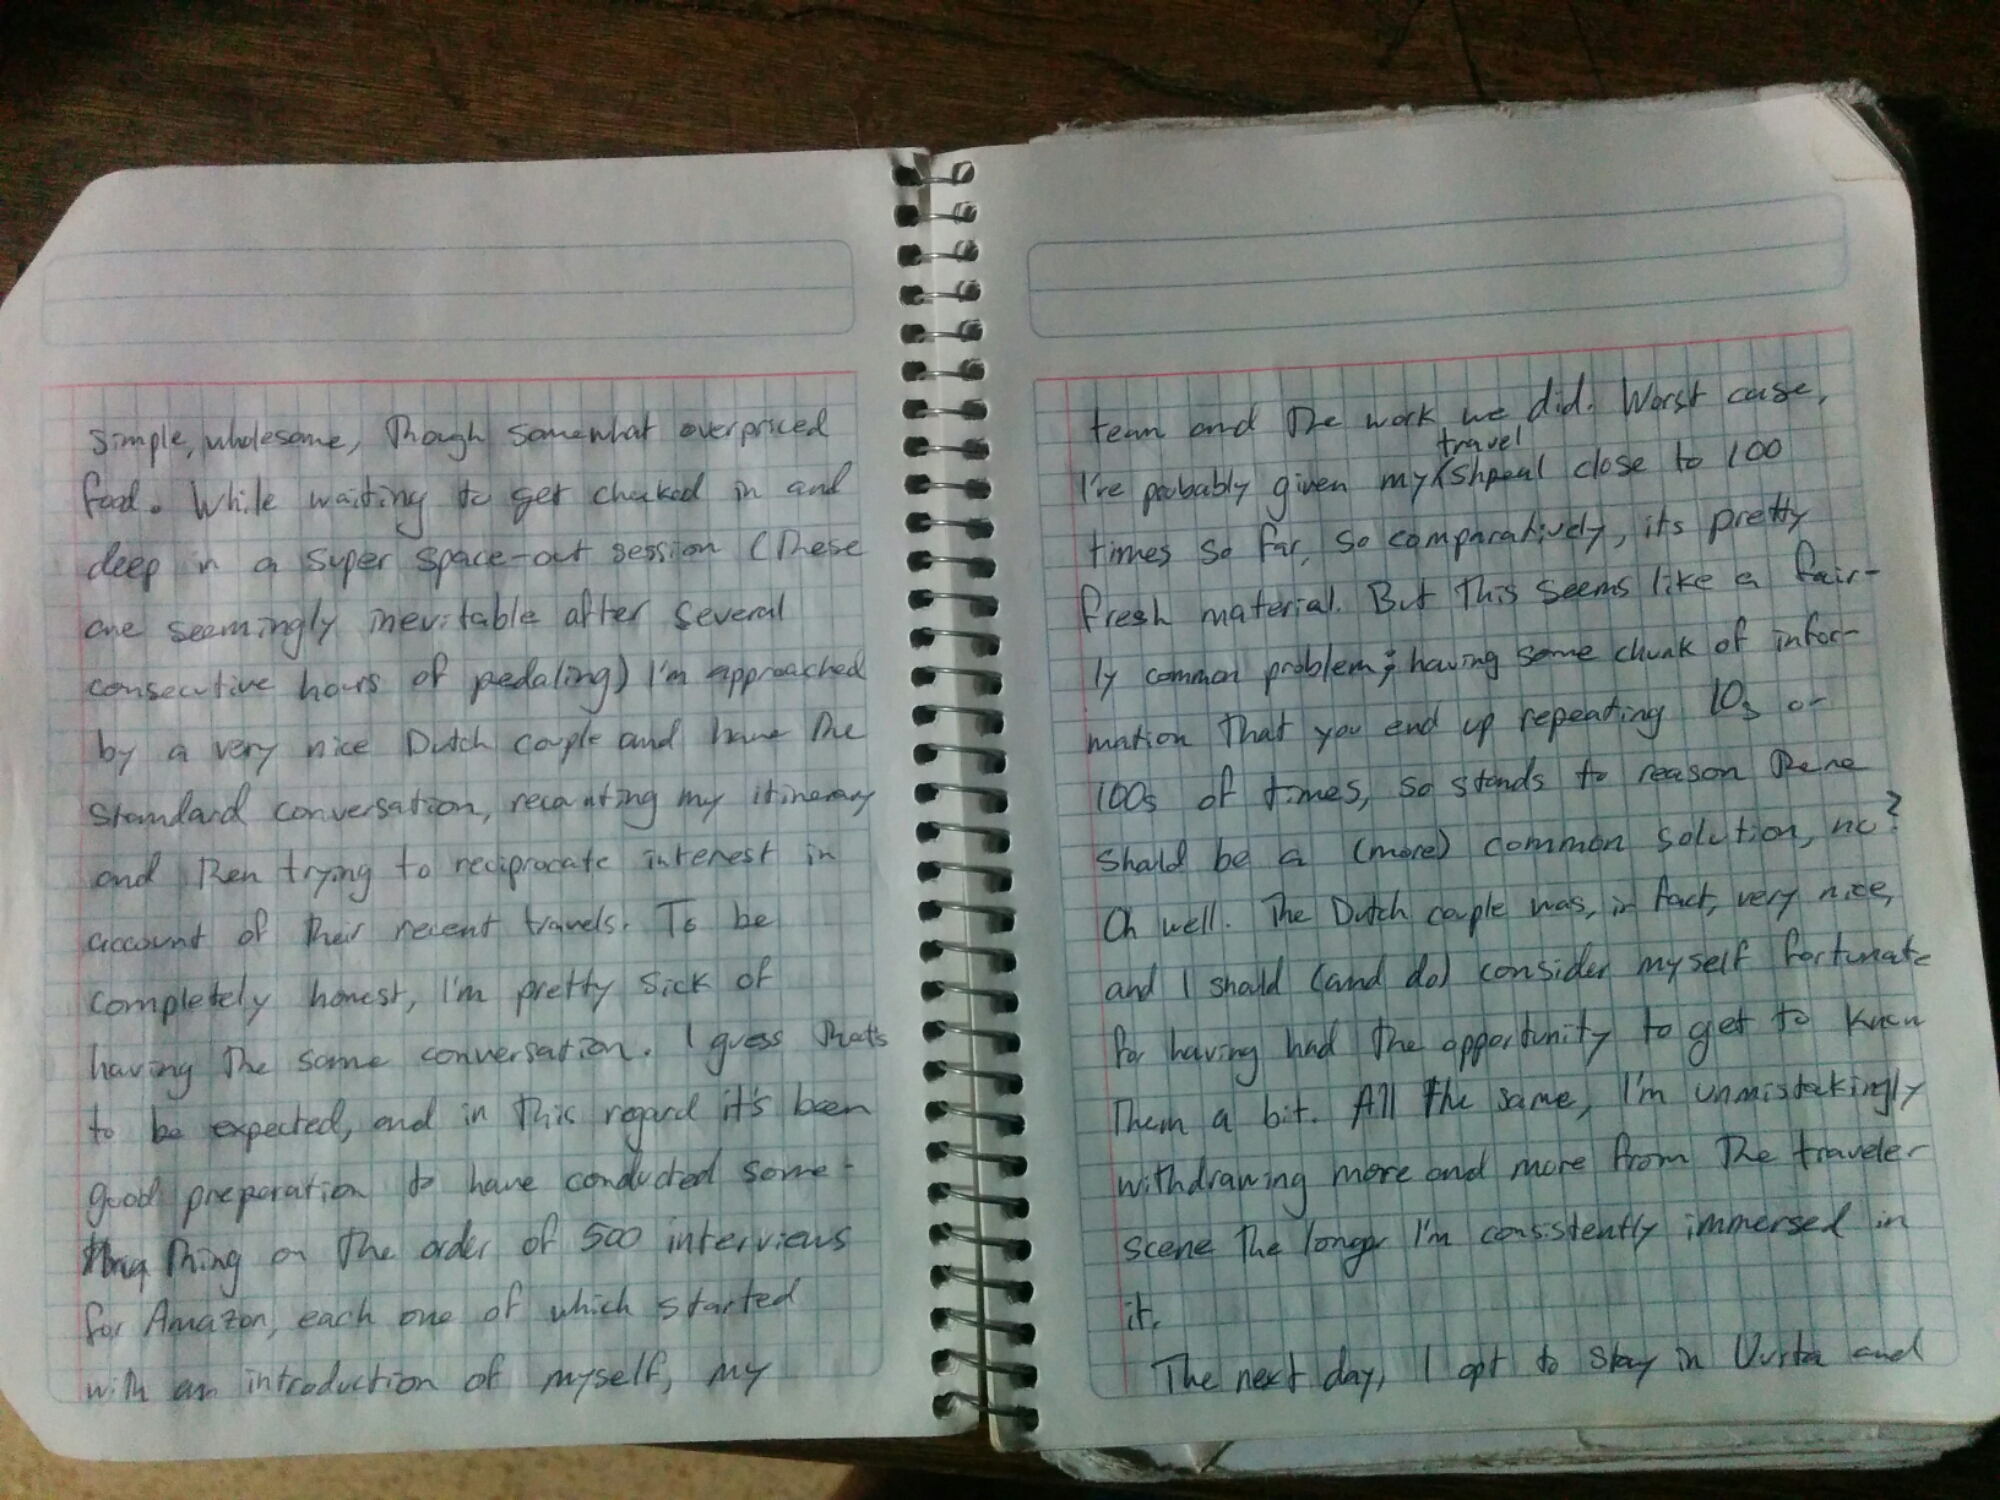 simple, wholesome, though somewhat overpriced
food. While waiting to get checked in and
deep in a super space-out session (these
are seemingly inevitable after several
consecutive hours of pedaling) I'm approached
by a very nice Dutch couple and have the
standard conversation, recounting my itinerary
and then trying to reciprocate interest in
account of their recent travels. To be
completely honest, I'm pretty sick of
having the same conversation. I guess that's
to be expected, and in this regard it's been
good preparation to have conducted some-
thing on the order of 500 interviews
for Amazon, each one of which started
with an introduction of myself, my
team and the work we did. Worst case,
travel
I've probably given my shpeal close to 100
times so far, so comparatively, its pretty
fresh material. But this seems like a fair-
ly common problem; having some chunk of infor-
mation that you end up repeating 10s or
100s of times, so stands to reason there
should be a (more) common solution, no?
Oh well. The Dutch couple was, in fact, very nice,
and I should (and do) consider myself fortunate
for having had the opportunity to get to know
them a bit. All the same, I'm unmistakingly
withdrawing more and more from the traveler
scene the longer I'm consistently immersed in
it.
The next day, I opt to stay in and